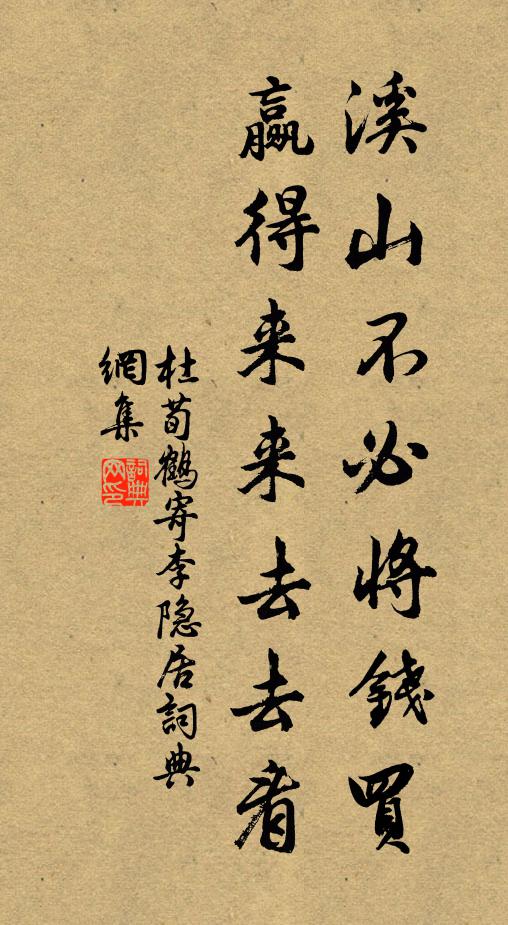 溪山不必將錢買
贏得来来去去看
杜荀鶴寄李隐居詞典
網集
詞典
网印